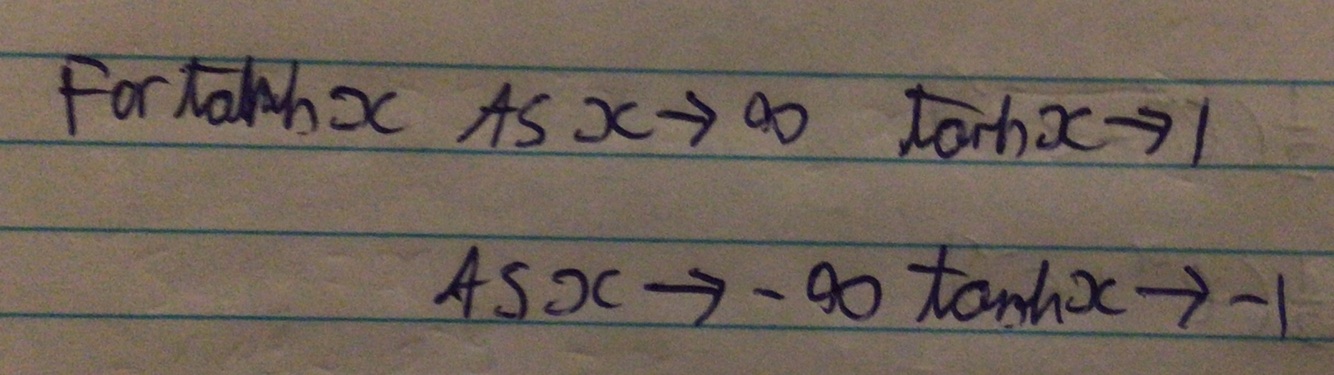 For tanh x As x → ∞ tanh x → 1
As x → -∞ tanh x → -1